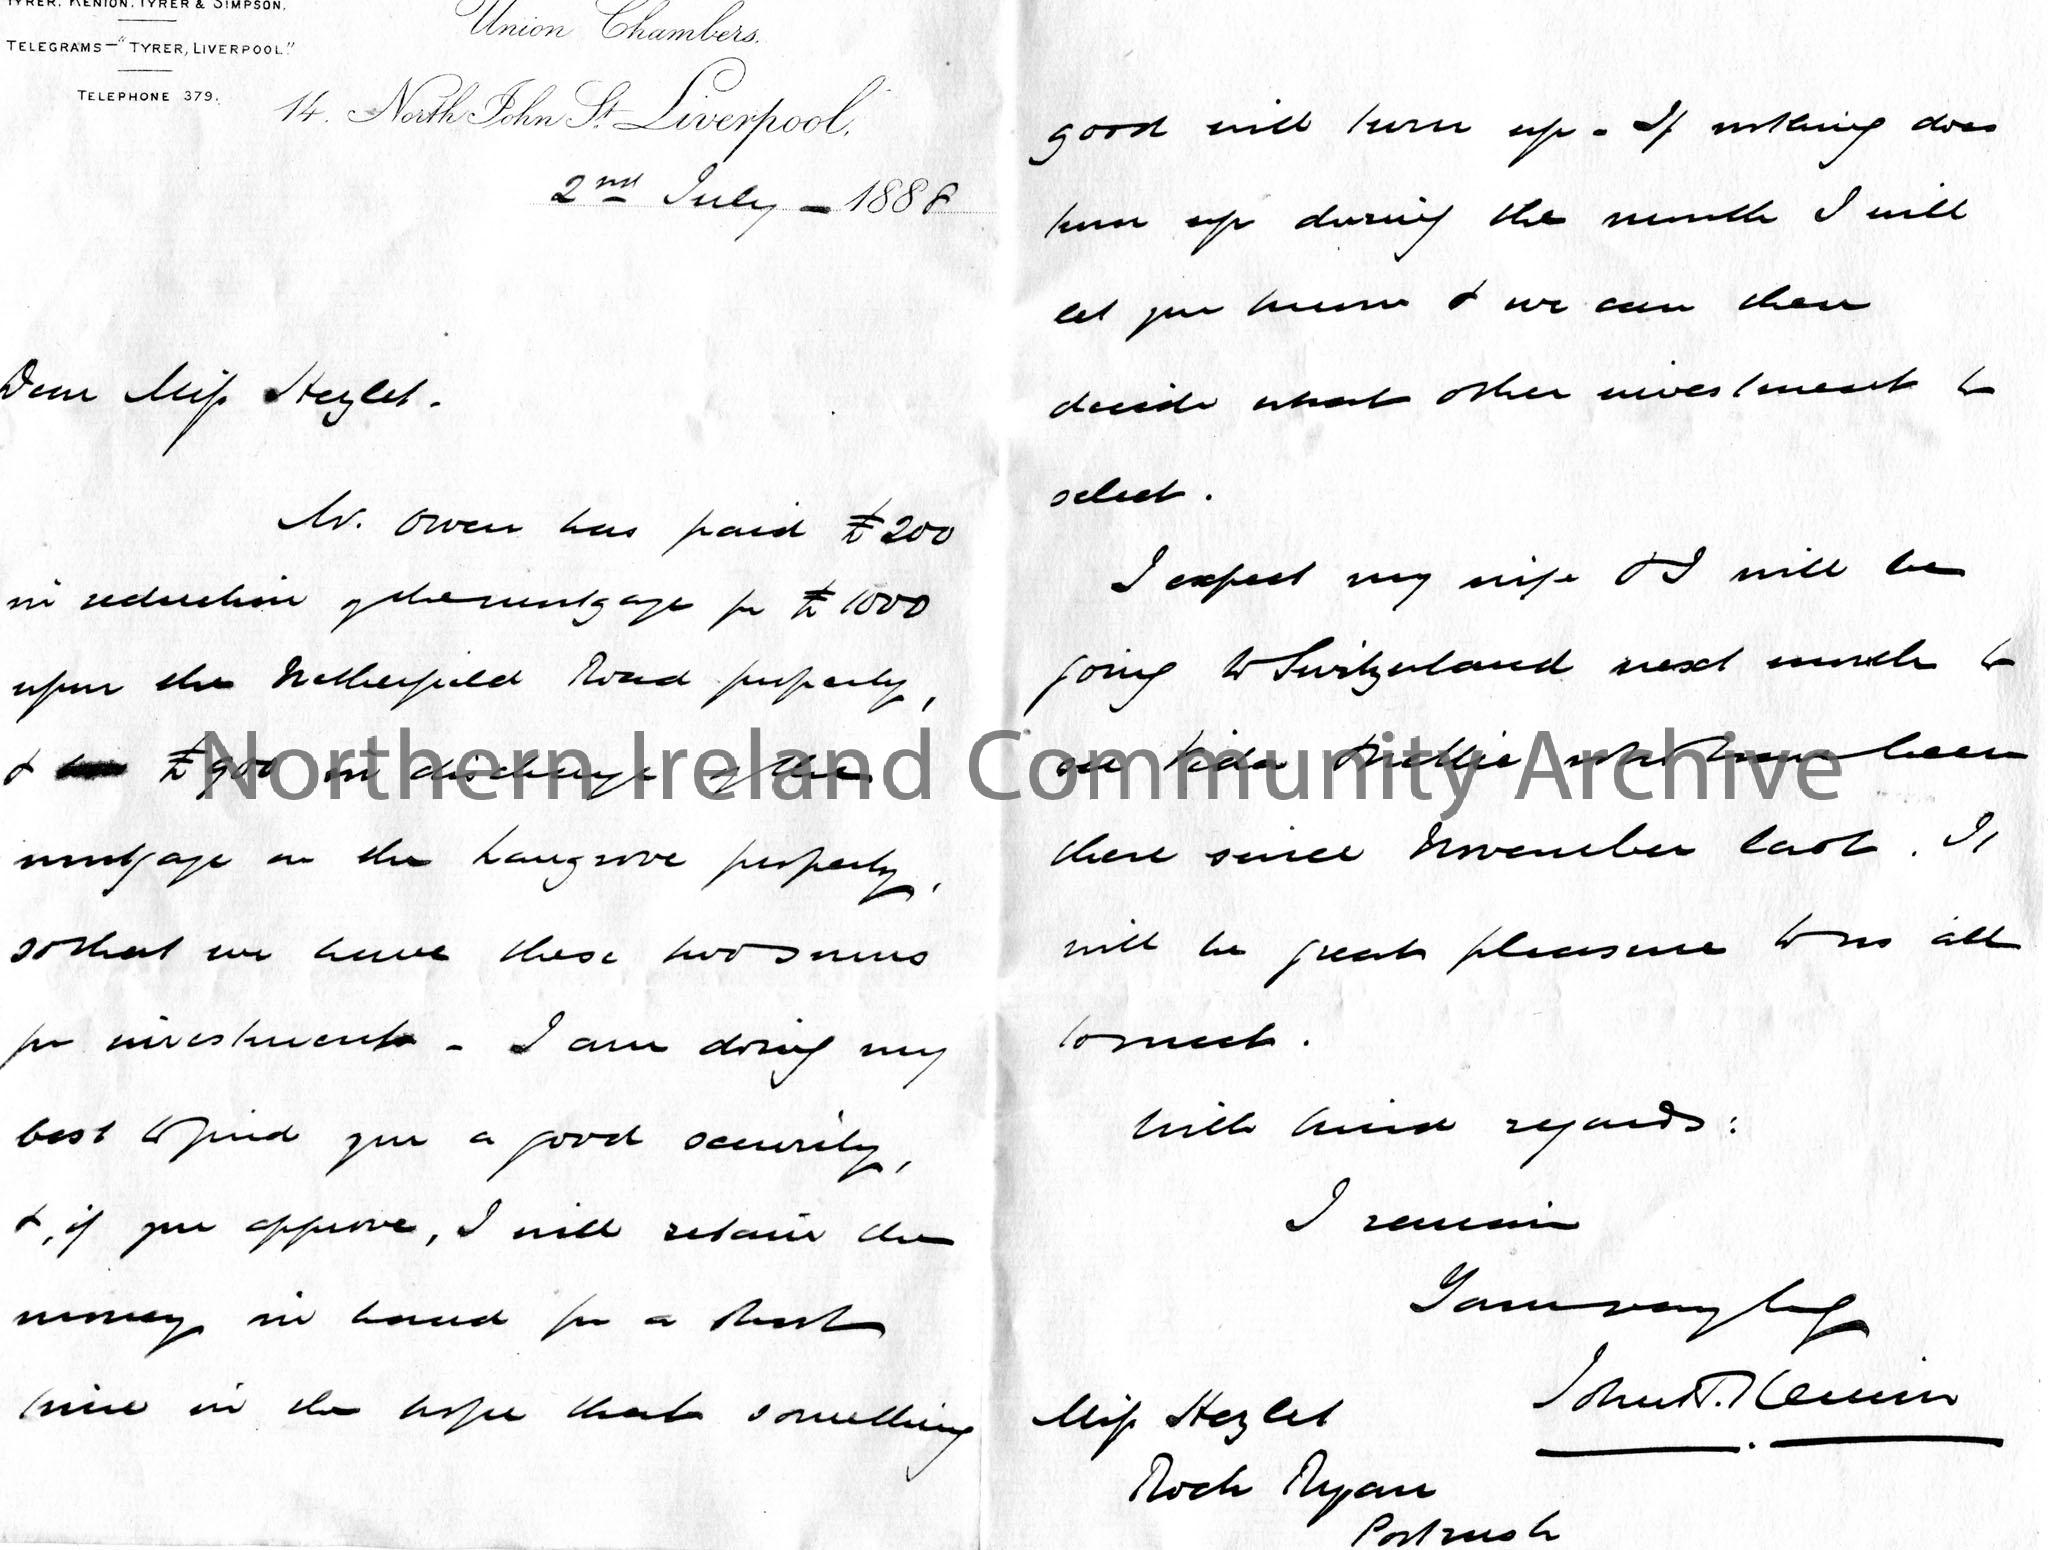 TYRER, KENION, TYRER & SIMPSON.
TELEGRAMS—"TYRER, LIVERPOOL"
TELEPHONE 379.
Union Chambers.
14. North John St. Liverpool.
2nd July — 1888
Dear Miss Hezlet.
Mr. Owen has paid £200
in reduction of the mortgage for £1000
upon the Netherfield Road property,
& £900 in discharge of the
mortgage on the Langrove property,
so that we have these two sums
for investment - I am doing my
best to find you a good security,
&, if you approve, I will retain the
money in hand for a short
time in the hope that something
good will turn up - If nothing does
turn up during the month I will
let you know & we can then
decide what other investment to
select.
I expect my wife & I will be
going to Switzerland next month to
see Vida & Nellie who have been
there since November last. It
will be great pleasure to us all
to meet.
With kind regards:
I remain
Yours very truly
John T. Kenion
Miss Hezlet
Rock Ryan
Portrush
Northern Ireland Community Archive